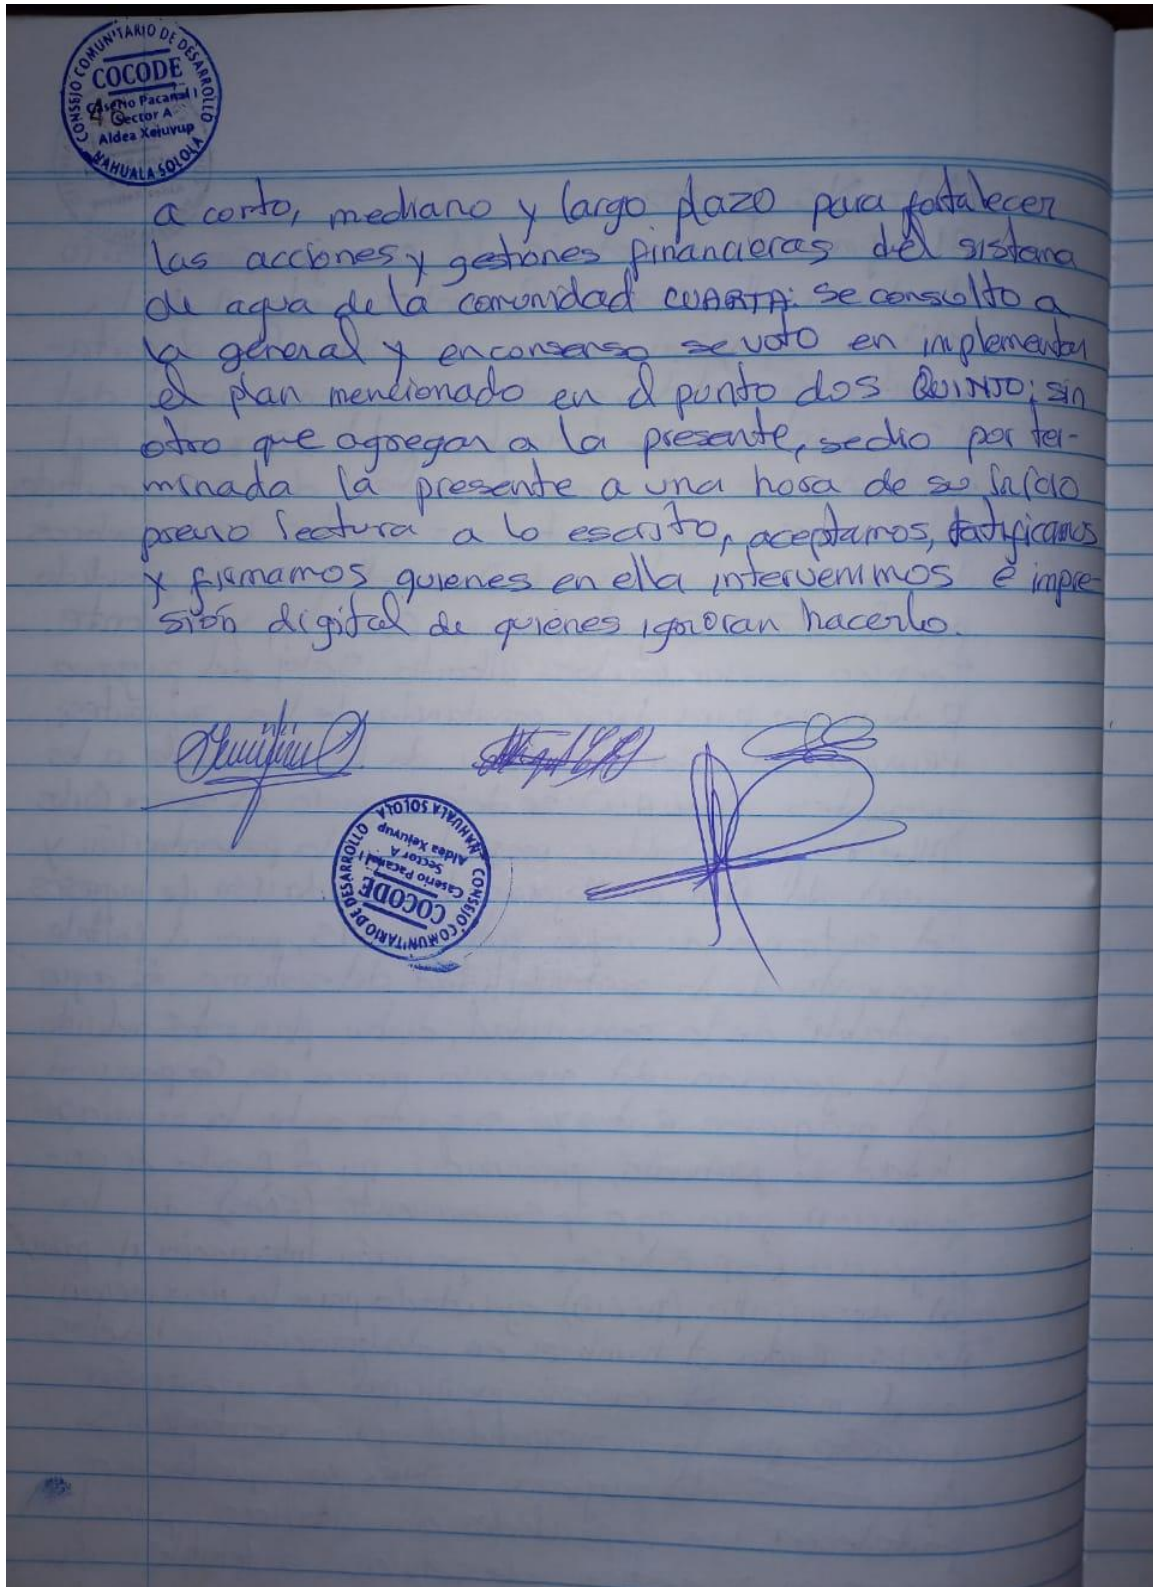 CONSEJO COMUNITARIO DE DESARROLLO
COCODE
Caserio Pacanal I
Sector A
Aldea Xejuyup
NAHUALA SOLOLA
a corto, mediano y largo plazo para fortalecer
las acciones y gestiones financieras del sistema
de agua de la comunidad CUARTA: se consulto a
la general y enconsenso se voto en implementar
el plan mencionado en el punto dos QUINTO; sin
otro que agregar a la presente, sedio por ter-
minada la presente a una hora de su
previo lectura a lo escrito, aceptamos, ratificamos
y firmamos quienes en ella intervenimos e impre-
sión digital de quienes ignoran hacerlo.
CONSEJO COMUNITARIO DE DESARROLLO
COCODE
Caserio Pacanal I
Sector A
Aldea Xejuyup
NAHUALA SOLOLA